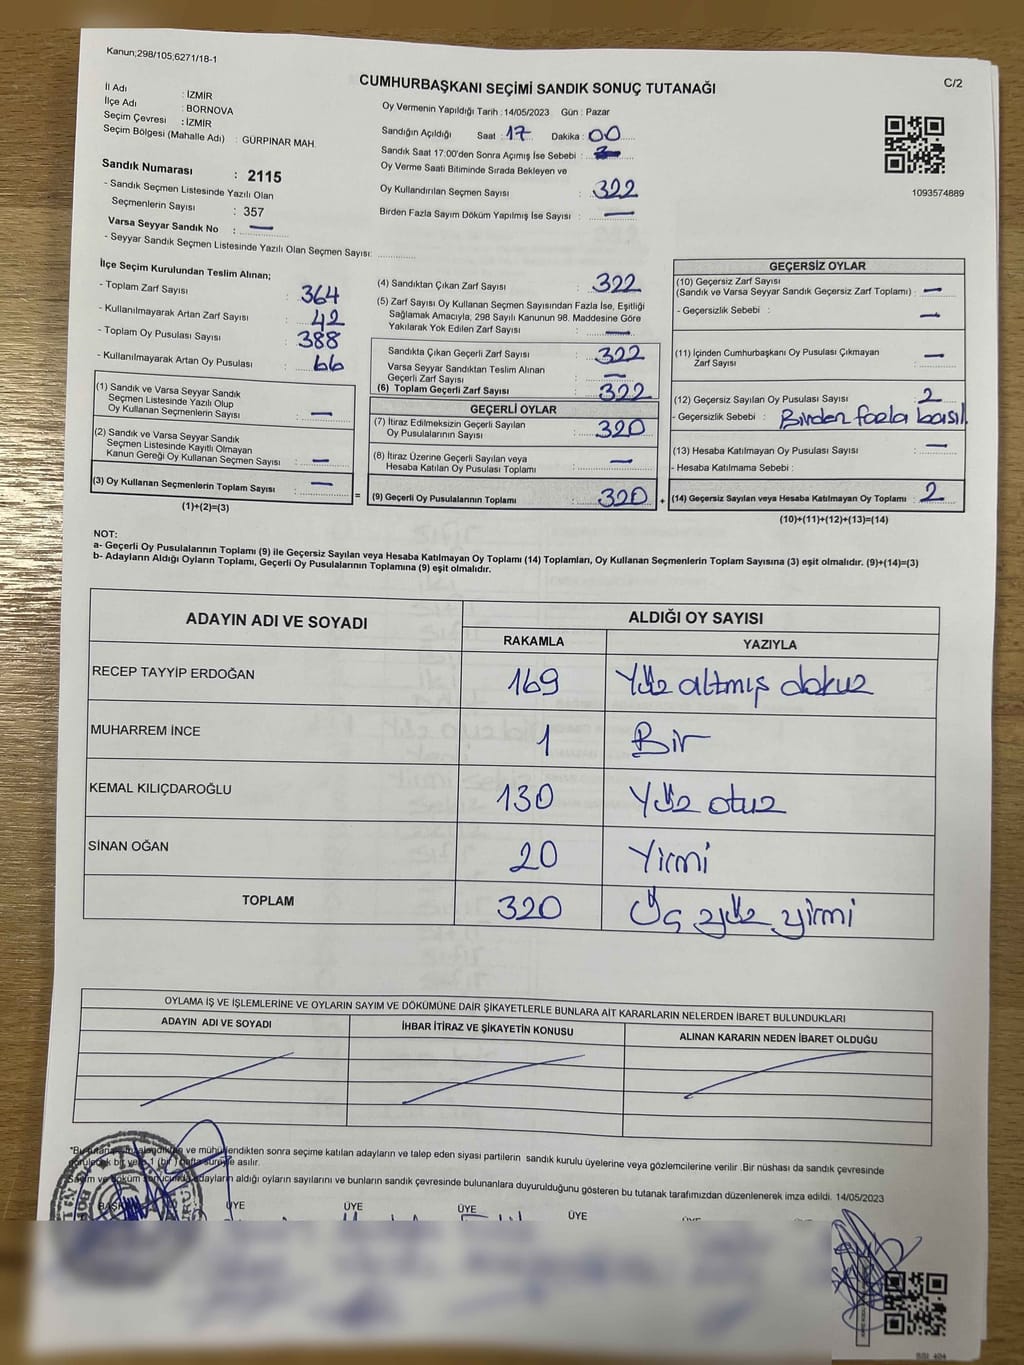 Kanun;298/105,6271/18-1
C/2
CUMHURBAŞKANI SEÇİMİ SANDIK SONUÇ TUTANAĞI
İl Adı : İZMİR
İlçe Adı : BORNOVA
Seçim Çevresi : İZMİR
Seçim Bölgesi (Mahalle Adı) : GÜRPINAR MAH.
Sandık Numarası : 2115
- Sandık Seçmen Listesinde Yazılı Olan
Seçmenlerin Sayısı : 357
Varsa Seyyar Sandık No : —
- Seyyar Sandık Seçmen Listesinde Yazılı Olan Seçmen Sayısı:
Oy Vermenin Yapıldığı Tarih : 14/05/2023 Gün : Pazar
Sandığın Açıldığı Saat : 17 Dakika : 00
Sandık Saat 17:00'den Sonra Açımış İse Sebebi :
Oy Verme Saati Bitiminde Sırada Bekleyen ve
Oy Kullandırılan Seçmen Sayısı : 322
Birden Fazla Sayım Döküm Yapılmış İse Sayısı : —
1093574889
İlçe Seçim Kurulundan Teslim Alınan;
- Toplam Zarf Sayısı : 364
- Kullanılmayarak Artan Zarf Sayısı : 42
- Toplam Oy Pusulası Sayısı : 388
- Kullanılmayarak Artan Oy Pusulası : 66
(1) Sandık ve Varsa Seyyar Sandık
Seçmen Listesinde Yazılı Olup
Oy Kullanan Seçmenlerin Sayısı : —
(2) Sandık ve Varsa Seyyar Sandık
Seçmen Listesinde Kayıtlı Olmayan
Kanun Gereği Oy Kullanan Seçmen Sayısı : —
(3) Oy Kullanan Seçmenlerin Toplam Sayısı : —
(1)+(2)=(3)
(4) Sandıktan Çıkan Zarf Sayısı : 322
(5) Zarf Sayısı Oy Kullanan Seçmen Sayısından Fazla İse, Eşitliği
Sağlamak Amacıyla, 298 Sayılı Kanunun 98. Maddesine Göre
Yakılarak Yok Edilen Zarf Sayısı : —
Sandıkta Çıkan Geçerli Zarf Sayısı : 322
Varsa Seyyar Sandıktan Teslim Alınan
Geçerli Zarf Sayısı : —
(6) Toplam Geçerli Zarf Sayısı : 322
GEÇERLİ OYLAR
(7) İtiraz Edilmeksizin Geçerli Sayılan
Oy Pusulalarının Sayısı : 320
(8) İtiraz Üzerine Geçerli Sayılan veya
Hesaba Katılan Oy Pusulası Toplamı : —
= (9) Geçerli Oy Pusulalarının Toplamı : 320 +
GEÇERSİZ OYLAR
(10) Geçersiz Zarf Sayısı
(Sandık ve Varsa Seyyar Sandık Geçersiz Zarf Toplamı) : —
- Geçersizlik Sebebi : —
(11) İçinden Cumhurbaşkanı Oy Pusulası Çıkmayan
Zarf Sayısı : —
(12) Geçersiz Sayılan Oy Pusulası Sayısı : 2
- Geçersizlik Sebebi : Birden fazla basıl.
(13) Hesaba Katılmayan Oy Pusulası Sayısı : —
- Hesaba Katılmama Sebebi :
(14) Geçersiz Sayılan veya Hesaba Katılmayan Oy Toplamı : 2
(10)+(11)+(12)+(13)=(14)
NOT:
a- Geçerli Oy Pusulalarının Toplamı (9) ile Geçersiz Sayılan veya Hesaba Katılmayan Oy Toplamı (14) Toplamları, Oy Kullanan Seçmenlerin Toplam Sayısına (3) eşit olmalıdır. (9)+(14)=(3)
b- Adayların Aldığı Oyların Toplamı, Geçerli Oy Pusulalarının Toplamına (9) eşit olmalıdır.
ADAYIN ADI VE SOYADI ALDIĞI OY SAYISI
RAKAMLA YAZIYLA
RECEP TAYYİP ERDOĞAN 169 Yüz altmış dokuz
MUHARREM İNCE 1 Bir
KEMAL KILIÇDAROĞLU 130 Yüz otuz
SİNAN OĞAN 20 Yirmi
TOPLAM 320 Üç yüz yirmi
OYLAMA İŞ VE İŞLEMLERİNE VE OYLARIN SAYIM VE DÖKÜMÜNE DAİR ŞİKAYETLERLE BUNLARA AİT KARARLARIN NELERDEN İBARET BULUNDUKLARI
ADAYIN ADI VE SOYADI İHBAR İTİRAZ VE ŞİKAYETİN KONUSU ALINAN KARARIN NEDEN İBARET OLDUĞU
ve mühürlendikten sonra seçime katılan adayların ve talep eden siyasi partilerin sandık kurulu üyelerine veya gözlemcilerine verilir .Bir nüshası da sandık çevresinde
bir hafta süreyle asılır.
Sayım ve döküm sonucunda adayların aldığı oyların sayılarını ve bunların sandık çevresinde bulunanlara duyurulduğunu gösteren bu tutanak tarafımızdan düzenlenerek imza edildi. 14/05/2023
ÜYE ÜYE ÜYE ÜYE